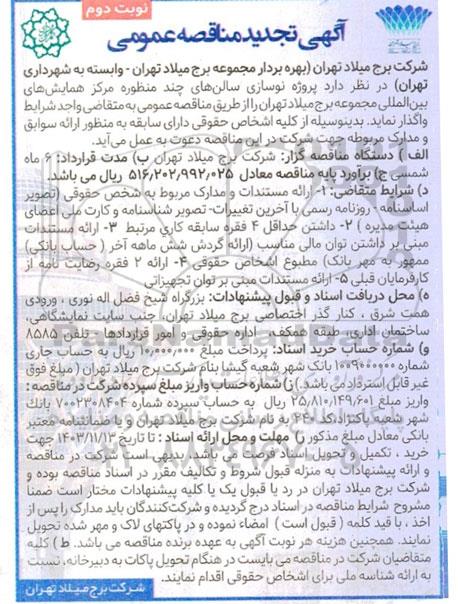 نوبت دوم
آگهی تجدید مناقصه عمومی
شرکت برج میلاد تهران (بهره بردار مجموعه برج میلاد تهران - وابسته به شهرداری
تهران) در نظر دارد پروژه نوسازی سالن‌های چند منظوره مرکز همایش‌های
بین‌المللی مجموعه برج میلاد تهران را از طریق مناقصه عمومی به متقاضی واجد شرایط
واگذار نماید. بدینوسیله از کلیه اشخاص حقوقی دارای سابقه به منظور ارائه سوابق
و مدارک مربوطه جهت شرکت در این مناقصه دعوت به عمل می‌آید.
الف ) دستگاه مناقصه گزار: شرکت برج میلاد تهران ب) مدت قرارداد: ۶ ماه
شمسی ج) برآورد پایه مناقصه معادل ۵۱۶/۲۰۲/۹۹۲/۰۲۵ ریال می باشد.
د) شرایط متقاضی: ۱- ارائه مستندات و مدارک مربوط به شخص حقوقی (تصویر
اساسنامه - روزنامه رسمی با آخرین تغییرات- تصویر شناسنامه و کارت ملی اعضای
هیئت مدیره ) ۲- داشتن حداقل ۴ فقره سابقه کاری مرتبط ۳- ارائه مستندات
مبنی بر داشتن توان مالی مناسب (ارائه گردش شش ماهه آخر ( حساب بانکی)
ممهور به مهر بانک) مطبوع اشخاص حقوقی ۴- ارائه ۲ فقره رضایت نامه از
کارفرمایان قبلی ۵- ارائه مستندات مبنی بر توان تجهیزاتی
ه) محل دریافت اسناد و قبول پیشنهادات: بزرگراه شیخ فضل اله نوری ، ورودی
همت شرق ، کنار گذر اختصاصی برج میلاد تهران، جنب سایت نمایشگاهی،
ساختمان اداری، طبقه همکف، اداره حقوقی و امور قراردادها - تلفن ۸۵۸۵
و) شماره حساب خرید اسناد: پرداخت مبلغ ۱۰/۰۰۰/۰۰۰ ریال به حساب جاری
شماره ۱۰۰۹۰۰۰۰۰۰ بانک شهر شعبه گیشا بنام شرکت برج میلاد تهران ( مبلغ فوق
غیر قابل استرداد می باشد.) ز) شماره حساب واریز مبلغ سپرده شرکت در مناقصه :
واریز مبلغ ۲۵/۸۱۰/۱۴۹/۶۰۱ ریال به حساب سپرده شماره ۷۰۰۲۳۰۸۴۰۴ بانک
شهر شعبه پاکنژاد، کد ۲۶۰ به نام شرکت برج میلاد تهران و یا ضمانتنامه معتبر
بانکی معادل مبلغ مذکور ح) مهلت و محل ارائه اسناد : تا تاریخ ۱۴۰۳/۱۱/۱۳ جهت
خرید ، تکمیل و تحویل اسناد فرصت می باشد. بدیهی است شرکت در مناقصه
و ارائه پیشنهادات به منزله قبول شروط و تکالیف مقرر در اسناد مناقصه بوده و
شرکت برج میلاد تهران در رد یا قبول یک یا کلیه پیشنهادات مختار است ضمنا
مشروح شرایط مناقصه در اسناد درج گردیده و شرکت‌کنندگان باید مدارک را پس از
اخذ ، با قید کلمه ( قبول است ) امضاء نموده و در پاکتهای لاک و مهر شده تحویل
نمایند. همچنین هزینه هر نوبت آگهی به عهده برنده مناقصه می باشد. ط ) کلیه
متقاضیان شرکت در مناقصه می بایست در هنگام تحویل پاکات به دبیرخانه، نسبت
به ارائه شناسه ملی برای اشخاص حقوقی اقدام نمایند.
شرکت برج میلاد تهران